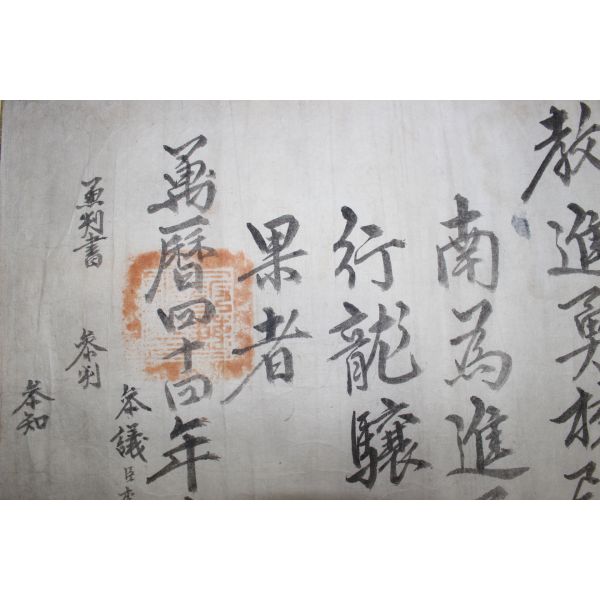 教進勇校
南為進
行龍驤
果者
萬曆四十四年
參議臣
兼判書 參判
參知